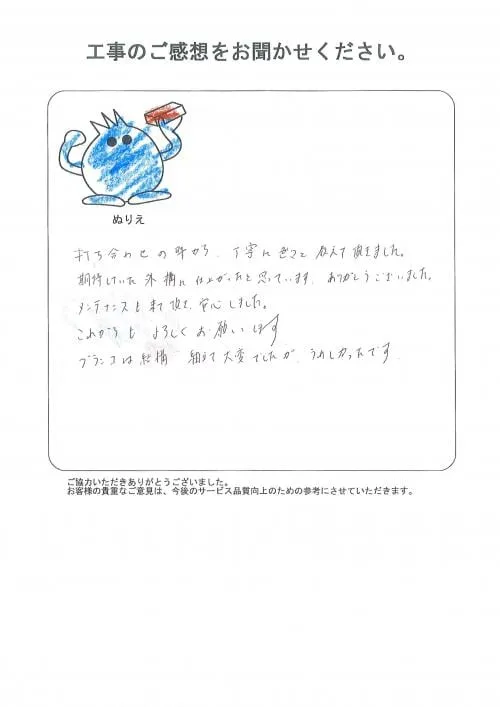 工事のご感想をお聞かせください。
ぬりえ
打ち合わせの時から、丁寧に 教えて頂きました。
期待していた外構に仕上がったと思っています。ありがとうございました。
メンテナンスも来て頂き、安心しました。
これからも よろしくお願いします
ブランコは結構 組立て大変でしたが、うれしかったです。
ご協力いただきありがとうございました。
お客様の貴重なご意見は、今後のサービス品質向上のための参考にさせていただきます。